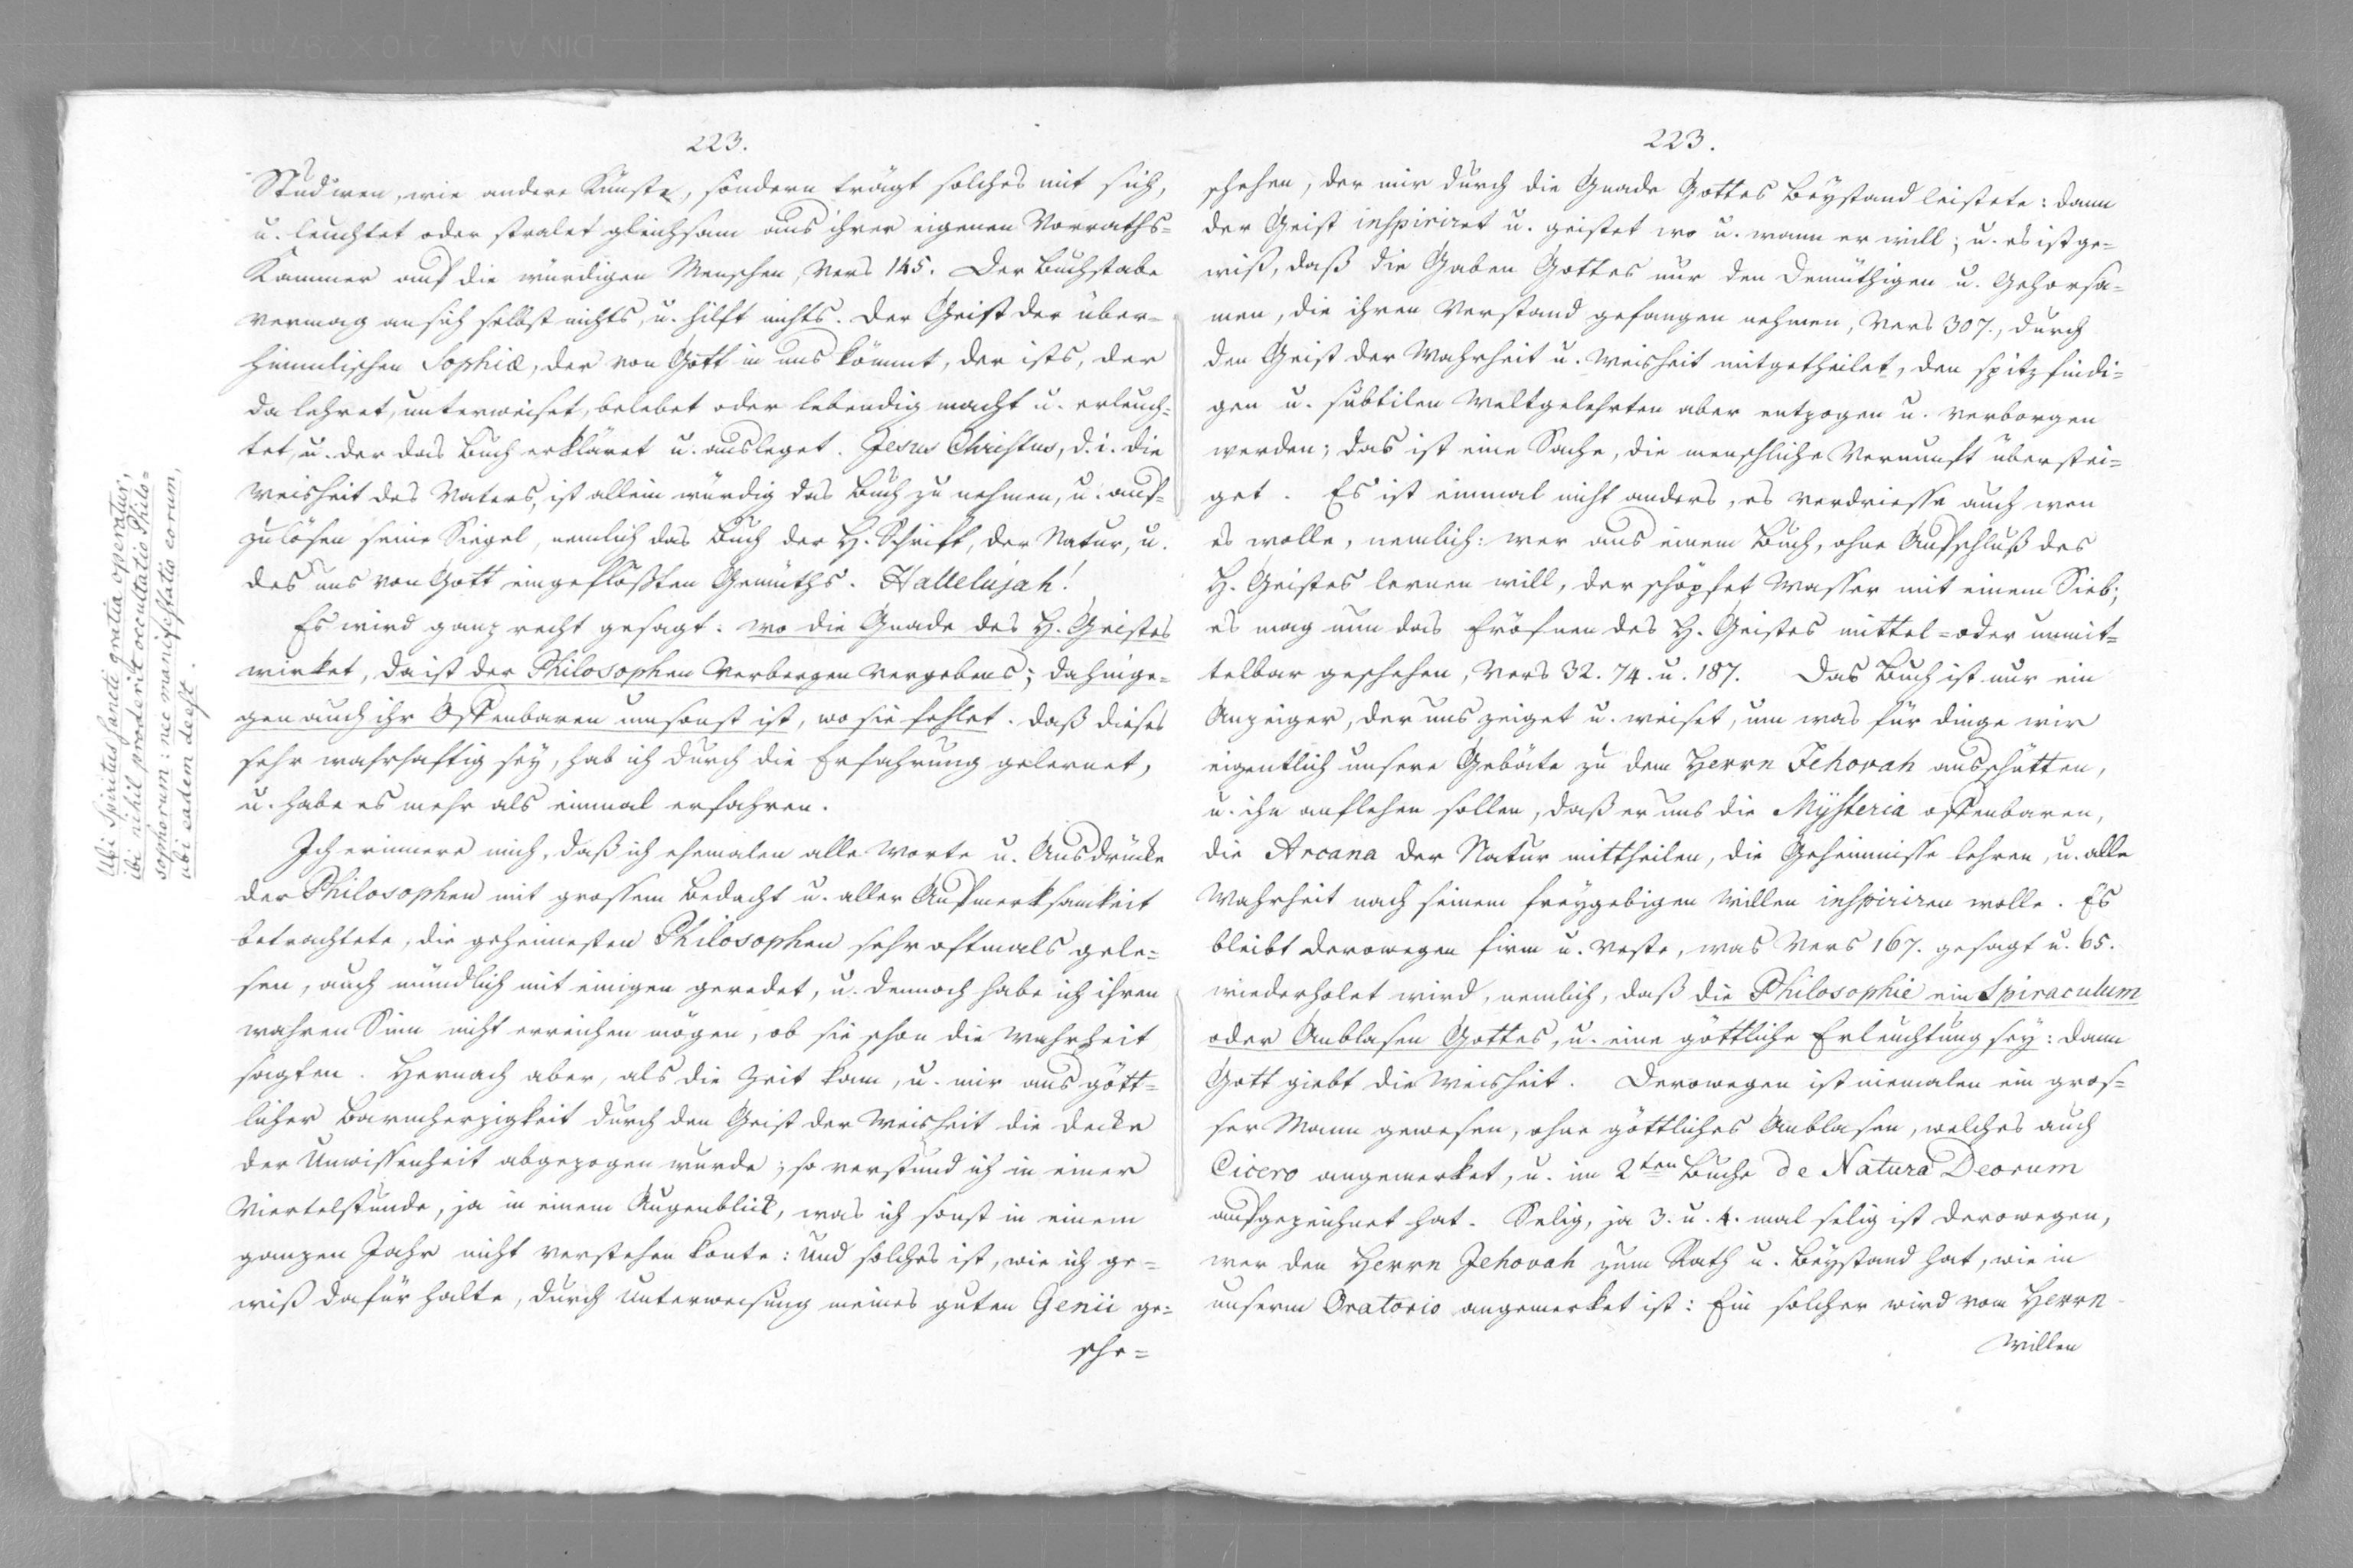 223.
Studiren, wie andere Künste, sondern trägt solches mit sich,
u. leuchtet oder stralet gleichsam aus ihrer eigenen Vorraths-
Kammer auf die würdigen Menschen, Vers 145. Der Buchstabe
vermag an sich selbst nichts, u. hilft nichts. Der Geist der über-
himmlischen Sophiæ, der von Gott in uns kömmt, der ists, der
da lehret, unterweiset, belebet oder lebendig macht u. erleuch-
tet, u. der das Buch erkläret u. ausleget. Jesus Christus, d. i. die
Weisheit des Vaters, ist allein würdig das Buch zu nehmen, u. auf-
zulösen seine Siegel, nemlich das Buch der H. Schrift, der Natur, u.
des uns von Gott eingeflößten Gemüths. Hallelujah!
Es wird ganz recht gesagt: wo die Gnade des H. Geistes
wirket, da ist der Philosophen Verbergen vergebens; dahinge-
gen auch ihr Offenbaren umsonst ist, wo sie fehlet. Daß dieses
sehr wahrhaftig sey, hab ich durch die Erfahrung gelernet,
u. habe es mehr als einmal erfahren.
Ich erinnere mich, daß ich ehemalen alle Worte u. Ausdrücke
der Philosophen mit grossem Bedacht u. aller Aufmerksamkeit
betrachtete, die geheimesten Philosophen sehr oftmals gele-
sen, auch mündlich mit einigen geredet, u. dennoch habe ich ihren
wahren Sinn nicht erreichen mögen, ob sie schon die Wahrheit
sagten. Hernach aber, als die Zeit kam, u. mir aus gött-
licher Barmherzigkeit durch den Geist der Weisheit die Decke
der Unwissenheit abgezogen wurde; so verstund ich in einer
Viertelstunde, ja in einem Augenblick, was ich sonst in einem
ganzen Jahr nicht verstehen konte: Und solches ist, wie ich ge-
wiß dafür halte, durch Unterweisung meines guten Genii ge-
sche-
Ubi Spiritus Sancti gratia operatur,
ibi nihil proderit occultatio Philo-
sophorum: nec manifestatio eorum,
ubi eadem deest.
223.
schehen, der mir durch die Gnade Gottes Beystand leistete: dann
der Geist inspiriret u. geistet wo u. wann er will; u. es ist ge-
wiß, daß die Gaben Gottes nur den Demüthigen u. Gehorsa-
men, die ihren Verstand gefangen nehmen, Vers 307., durch
den Geist der Wahrheit u. Weisheit mitgetheilet, den spitzfindi-
gen u. subtilen Weltgelehrten aber entzogen u. verborgen
werden; das ist eine Sache, die menschliche Vernunft überstei-
get. Es ist einmal nicht anders, es verdriesse auch wen
es wolle, nemlich: wer aus einem Buch, ohne Aufschluß des
H. Geistes lernen will, der schöpfet Wasser mit einem Sieb;
es mag nun das Eröfnen des H. Geistes mittel- oder unmit-
telbar geschehen, Vers 32. 74. u. 187. Das Buch ist nur ein
Anzeiger, der uns zeiget u. weiset, um was für Dinge wir
eigentlich unsere Gebäte zu dem Herrn Jehovah ausschütten,
u. ihn anflehen sollen, daß er uns die Mysteria offenbaren,
die Arcana der Natur mittheilen, die Geheimnisse lehren, u. alle
Wahrheit nach seinem freygebigen Willen inspiriren wolle. Es
bleibt derowegen firm u. veste, was Vers 167. gesagt u. 65.
wiederholet wird, nemlich, daß die Philosophie ein Spiraculum
oder Anblasen Gottes, u. eine göttliche Erleuchtung sey: dann
Gott giebt die Weisheit. Derowegen ist niemalen ein gros-
ser Mann gewesen, ohne göttliches Anblasen, welches auch
Cicero angemerket, u. im 2ten Buche de Natura Deorum
aufgezeichnet hat. Selig, ja 3. u. 4. mal selig ist derowegen,
wer den Herrn Jehovah zum Rath u. Beystand hat, wie in
unserm Oratorio angemerket ist: Ein solcher wird vom Herrn
Willen